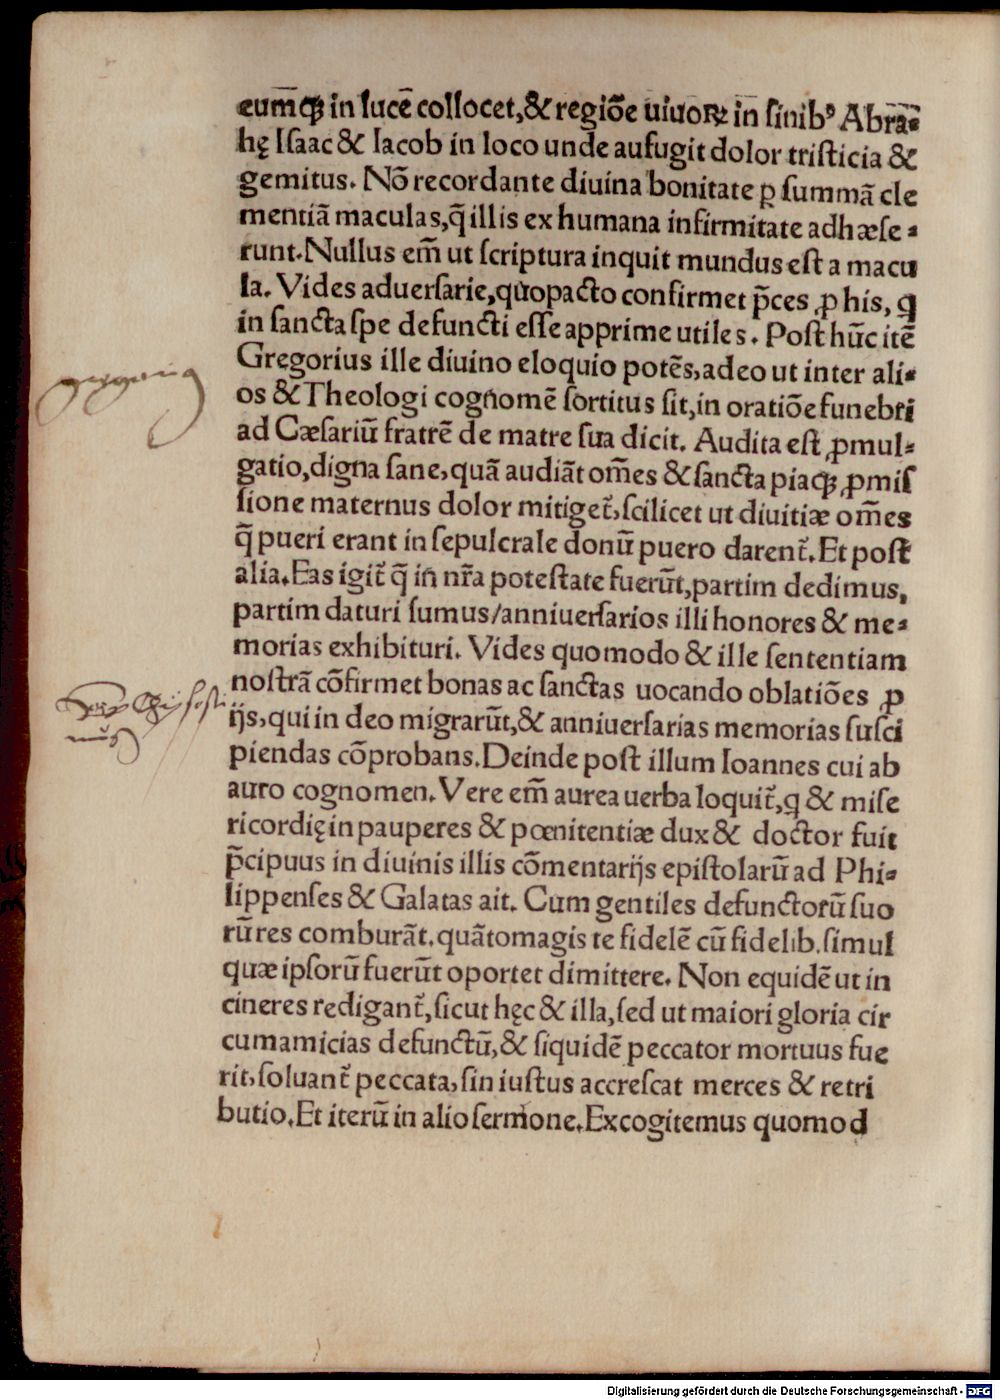 eum̃qꝫ in lucē collocet,& regiõe uiuoꝝ in ſinibꝰ Abra⸗
hę Iſaac & Iacob in loco unde aufugit dolor triſticia &
gemitus. Nõ recordante diuina bonitate ꝑ ſummã cle
mentiã maculas,q̃ illis ex humana infirmitate adhæſe⸗
runt.Nullus em̃ ut ſcriptura inquit mundus eſt a macu
la. Vides aduerſarie,quopacto confirmet p̃ces ꝓ his, q
in ſancta ſpe defuncti eſſe apprime utiles. Poſt hũc itẽ
Gregorius ille diuino eloquio potẽs,adeo ut inter ali⸗
os & Theologi cognomẽ ſortitus ſit,in oratiõe funebri
ad Cæſariũ fratrẽ de matre ſua dicit. Audita eſt ꝓmul⸗
gatio,digna ſane,quã audiãt om̃es & ſancta piaqꝫ ꝓmiſ
ſione maternus dolor mitiget̃,ſcilicet ut diuitiæ om̃es
q̃ pueri erant in ſepulcrale donũ puero darent̃.Et poſt
alia.Eas igit̃ q̃ in nr̃a poteſtate fuerũt,partim dedimus,
partim daturi ſumus/anniuerſarios illi honores & me⸗
morias exhibituri. Vides quomodo & ille ſententiam
noſtrã cõfirmet bonas ac ſanctas uocando oblatiões ꝓ
ijs,qui in deo migrarũt,& anniuerſarias memorias ſuſci
piendas cõprobans.Deinde poſt illum Ioannes cui ab
auro cognomen.Vere em̃ aurea uerba loquit̃,q & miſe
ricordię in pauperes & pœnitentiæ dux & doctor fuit
p̃cipuus in diuinis illis cõmentarijs epiſtolarũ ad Phi⸗
lippenſes & Galatas ait. Cum gentiles defunctorũ ſuo
rũ res comburãt,quãtomagis te fidelẽ cũ fidelib.ſimul
quæ ipſorũ fuerũt oportet dimittere. Non equidẽ ut in
cineres redigant̃,ſicut hęc & illa,ſed ut maiori gloria cir
cumamicias defunctũ,& ſiquidẽ peccator mortuus fue
rit,ſoluant̃ peccata,ſin iuſtus accreſcat merces & retri
butio.Et iterũ in alio ſermone.Excogitemus quomod
Digitalisierung gefördert durch die Deutsche Forschungsgemeinschaft - DFG